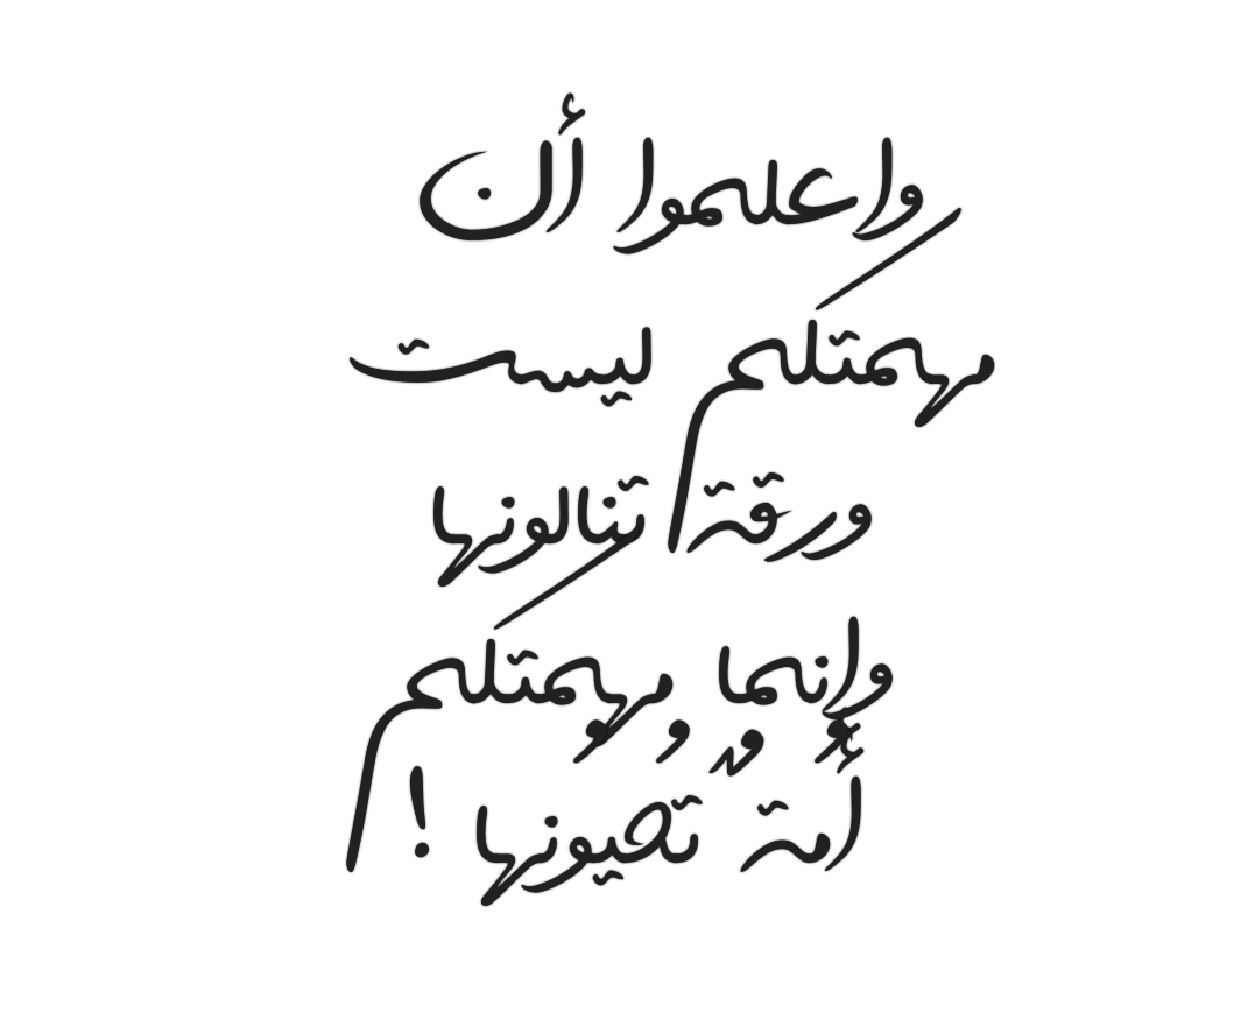 واعلموا أن
مهمتكم ليست
ورقة تنالونها
وإنما مهمتكم
أُمةٌ تُحيونها !